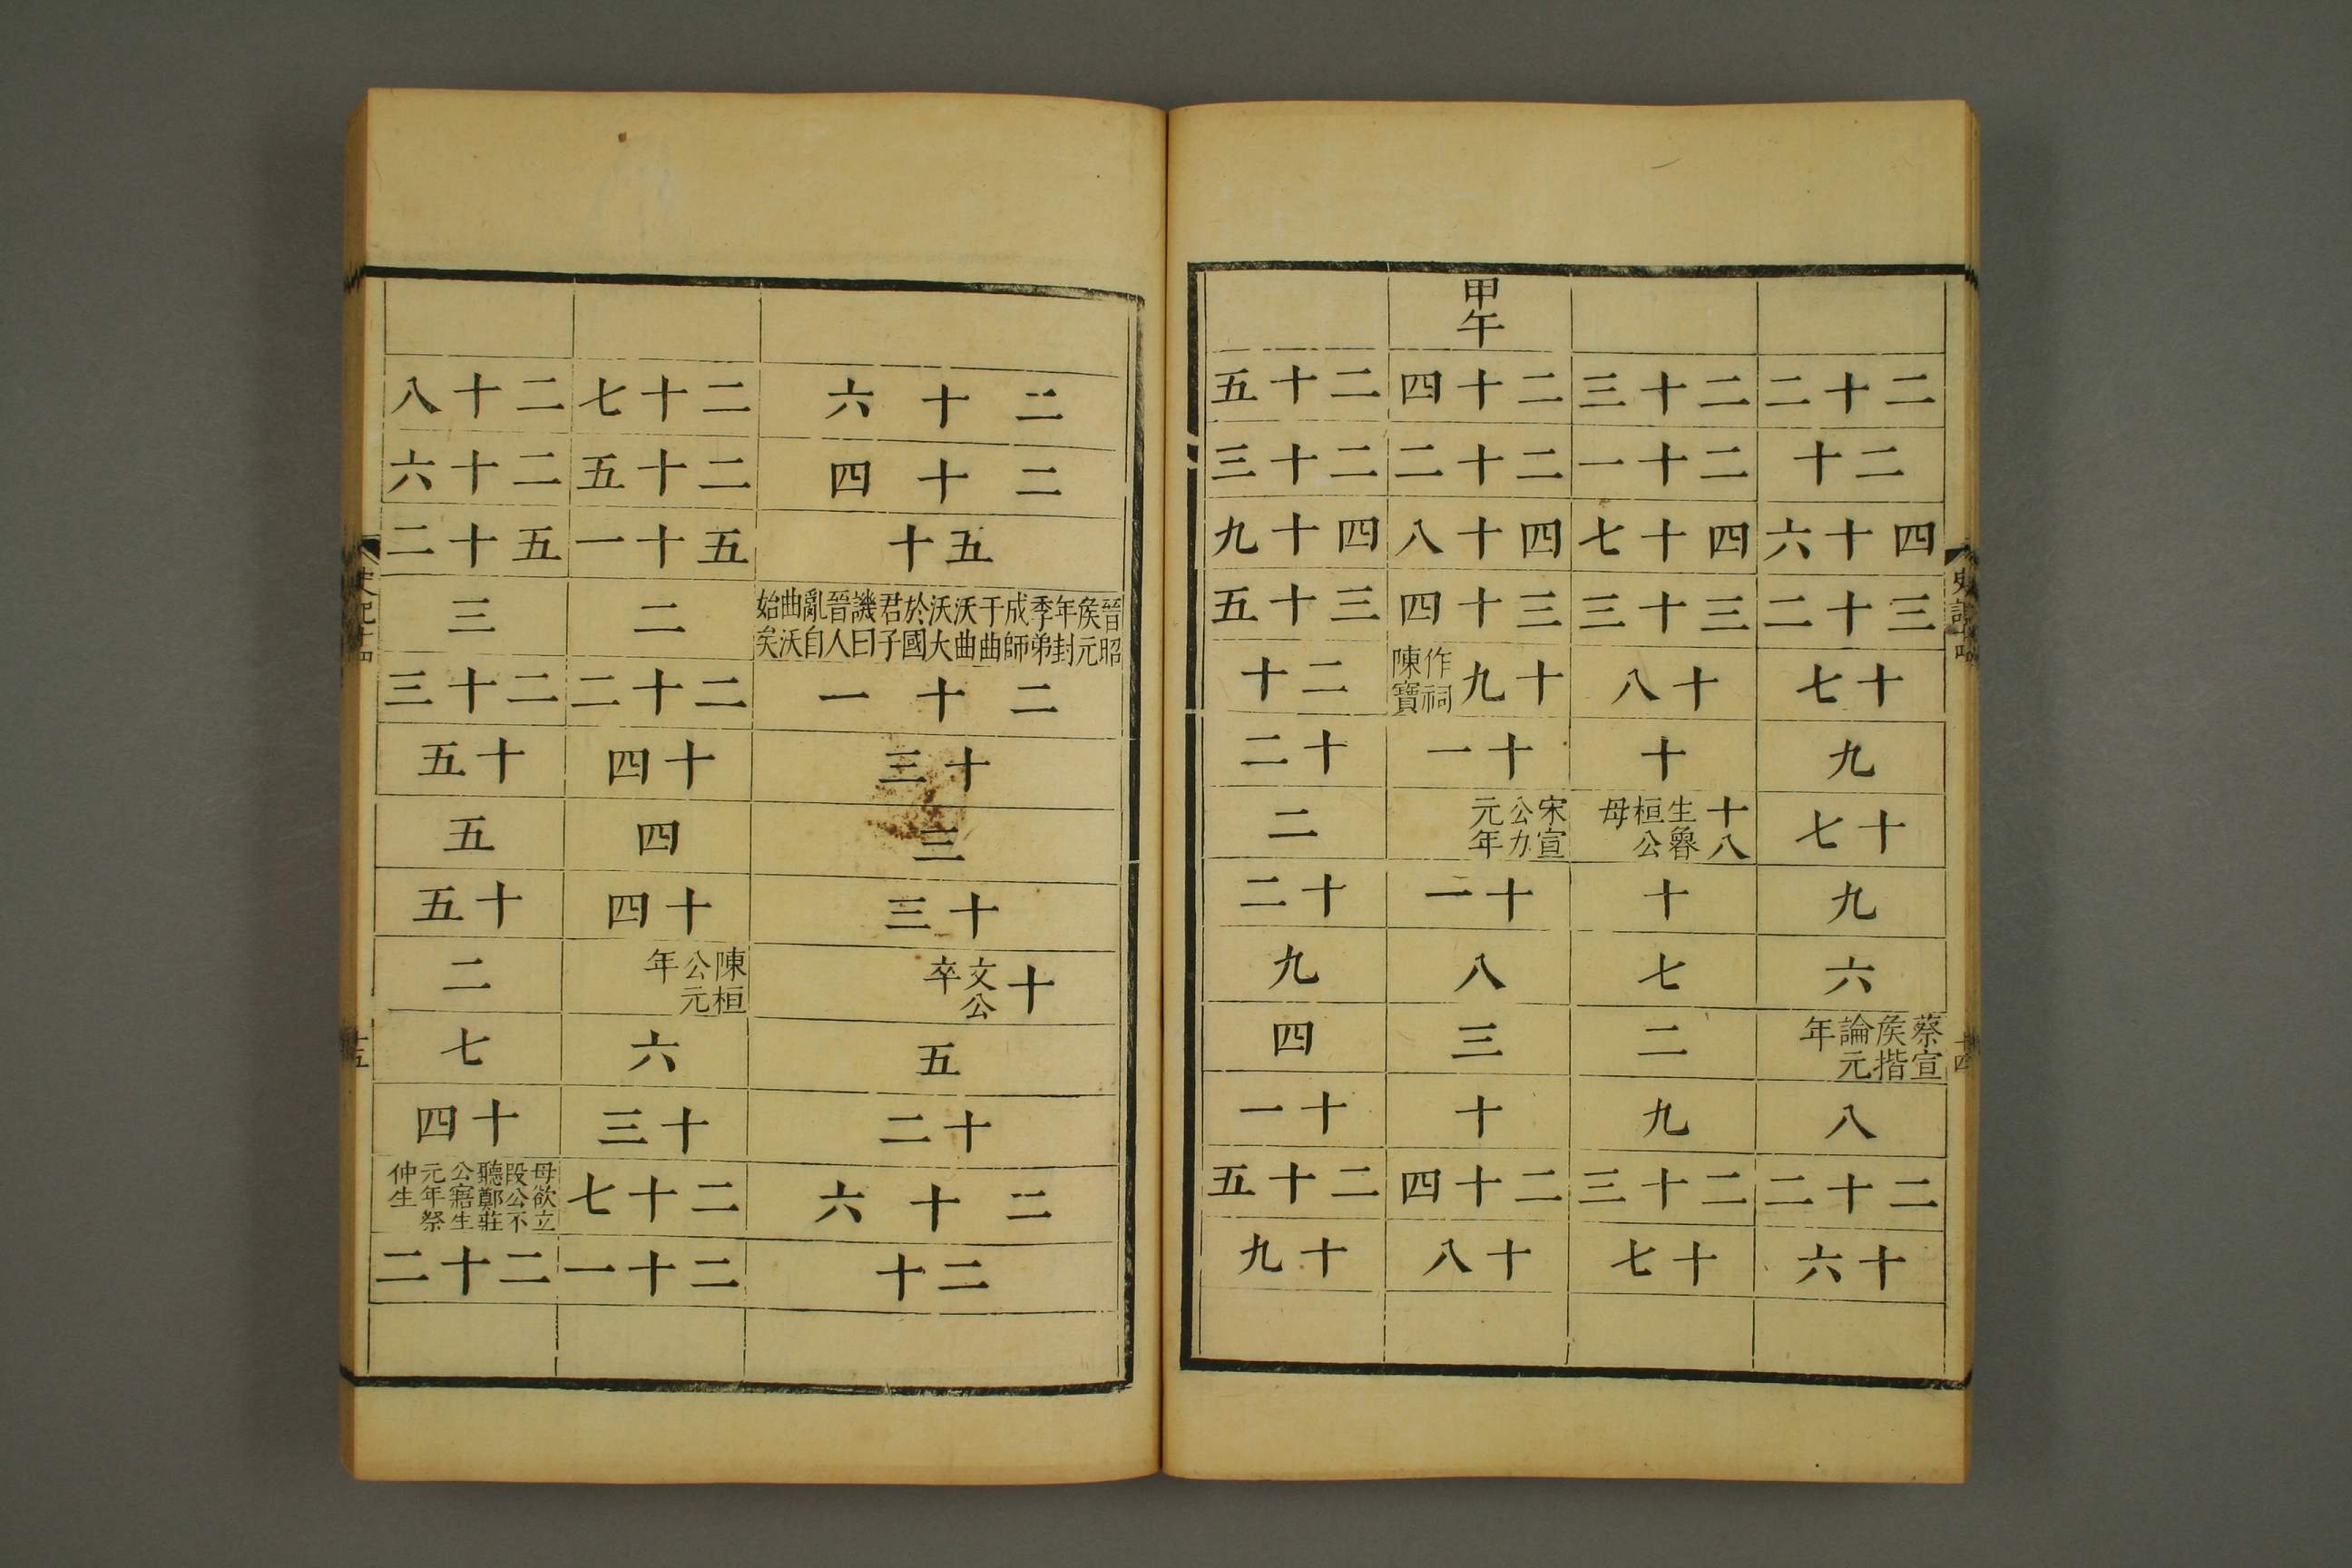 二十二
二十
四十六
三十二
十七
九
十七
九
六
蔡宣侯揩論元年
八
二十二
十六
二十三
二十一
四十七
三十三
十八
十
十八生魯桓公母
十
七
二
九
二十三
十七
甲午
二十四
二十二
四十八
三十四
十九作祠陳寶
十一
宋宣公力元年
十一
八
三
十
二十四
十八
二十五
二十三
四十九
三十五
二十
十二
二
十二
九
四
十一
二十五
十九
二十六
二十四
五十
晉昭侯元年封季弟成師于曲沃曲沃大於國君子譏曰晉人亂自曲沃始矣
二十一
十三
三
十三
十文公卒
五
十二
二十六
二十
二十七
二十五
五十一
二
二十二
十四
四
十四
陳桓公元年
六
十三
二十七
二十一
二十八
二十六
五十二
三
二十三
十五
五
十五
二
七
十四
母欲立段公不聽鄭莊公寤生元年祭仲生
二十二